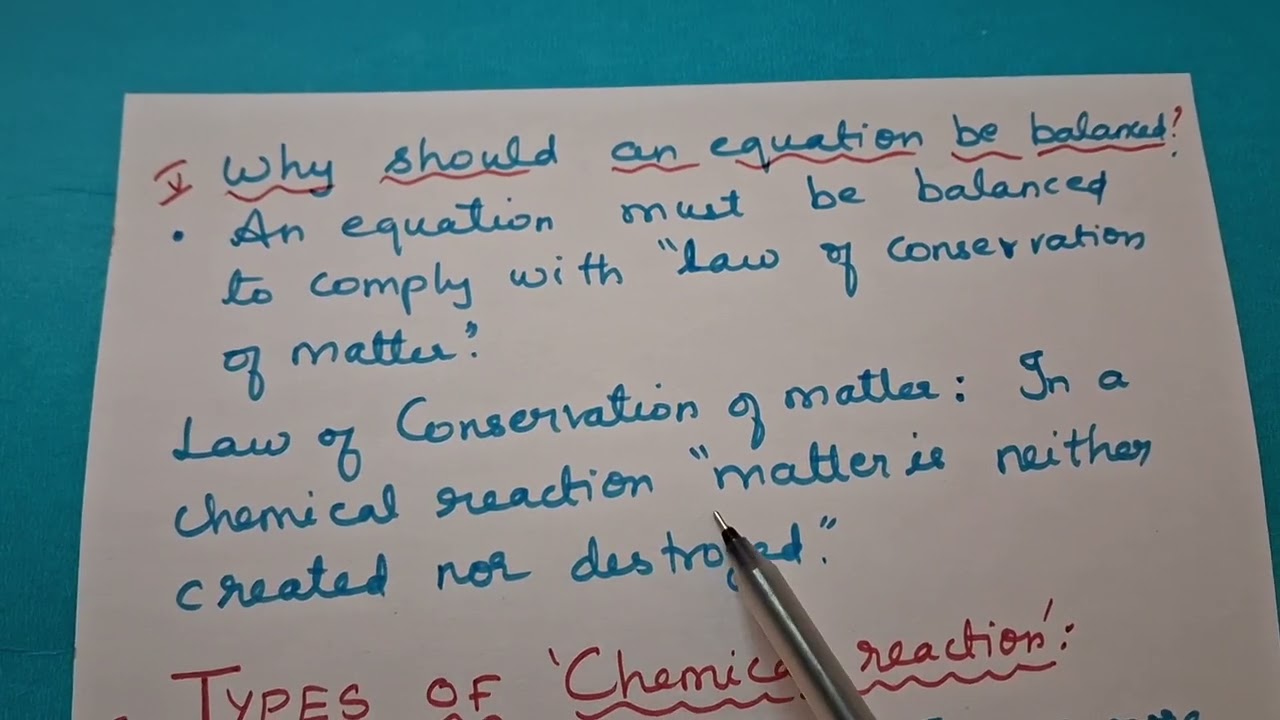 Why should an equation be balanced?
• An equation must be balanced
to comply with "Law of conservation
of matter".
Law of Conservation of matter: In a
chemical reaction "matter is neither
created nor destroyed."
TYPES OF 'Chemical reaction':